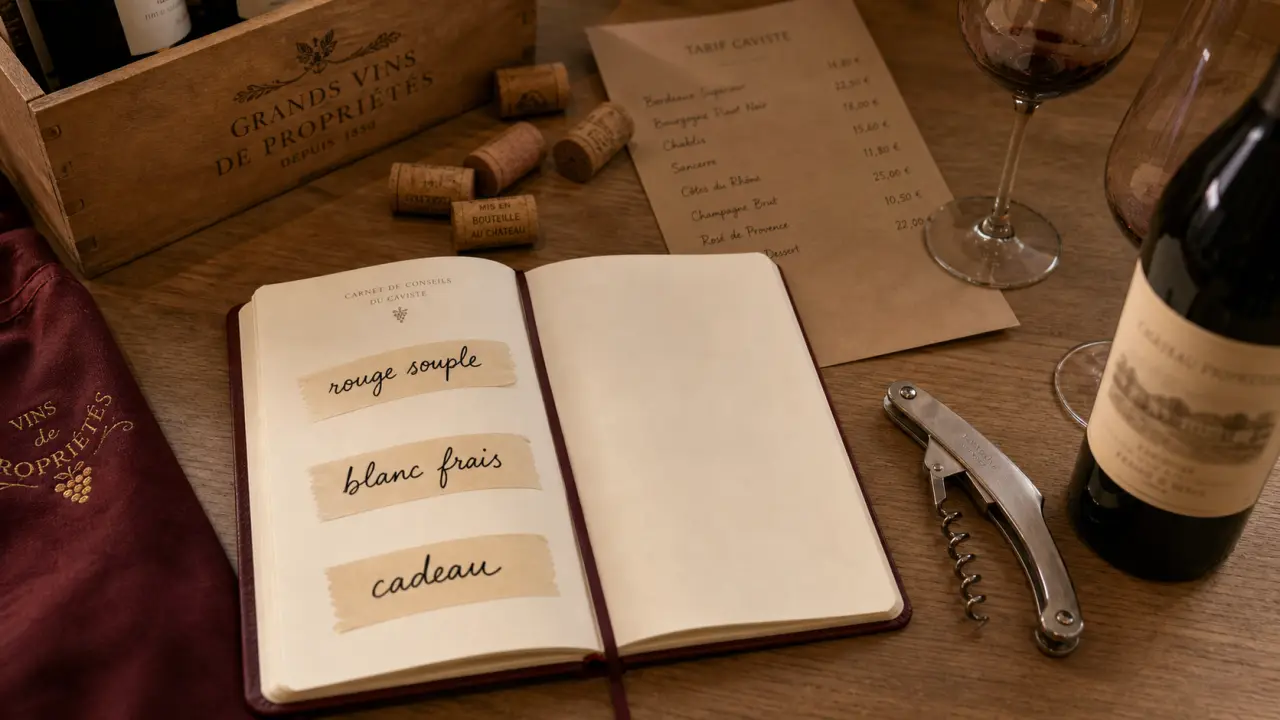 GRANDS VINS
DE PROPRIÉTÉS
DEPUIS 1850
MIS EN
BOUTEILLE
AU CHATEAU
TARIF CAVISTE
Bordeaux Supérieur 14,80 €
Bourgogne Pinot Noir 22,50 €
Chablis 18,00 €
Sancerre 15,60 €
Côtes du Rhône 11,80 €
Champagne Brut 25,00 €
Rosé de Provence 10,50 €
Dessert 22,00
CARNET DE CONSEILS
DU CAVISTE
rouge souple
blanc frais
cadeau
VINS
de
PROPRIÉTÉS